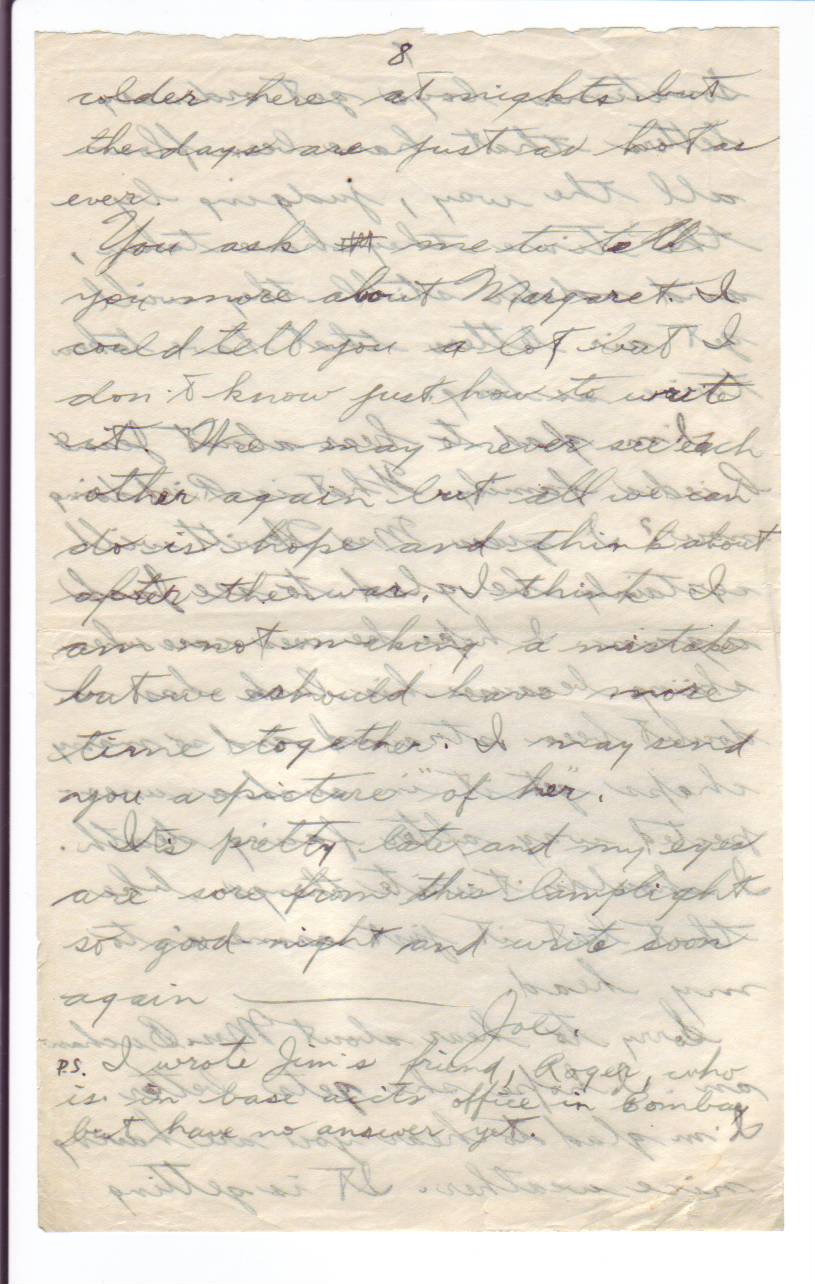 8
colder here at nights but
the days are just as hot as
ever.
You ask me to tell
you more about Margaret. I
could tell you a lot but I
don't know just how to write
it. We may never see each
other again but all we can
do is hope and think about
after the war. I think I
am not making a mistake
but we should have more
time together. I may send
you a picture "of her".
It's pretty late and my eyes
are sore from this lamplight
so good-night and write soon
again
Joe.
P.S. I wrote Jim's friend, Roger, who
is in base accts office in Bombay
but have no answer yet.